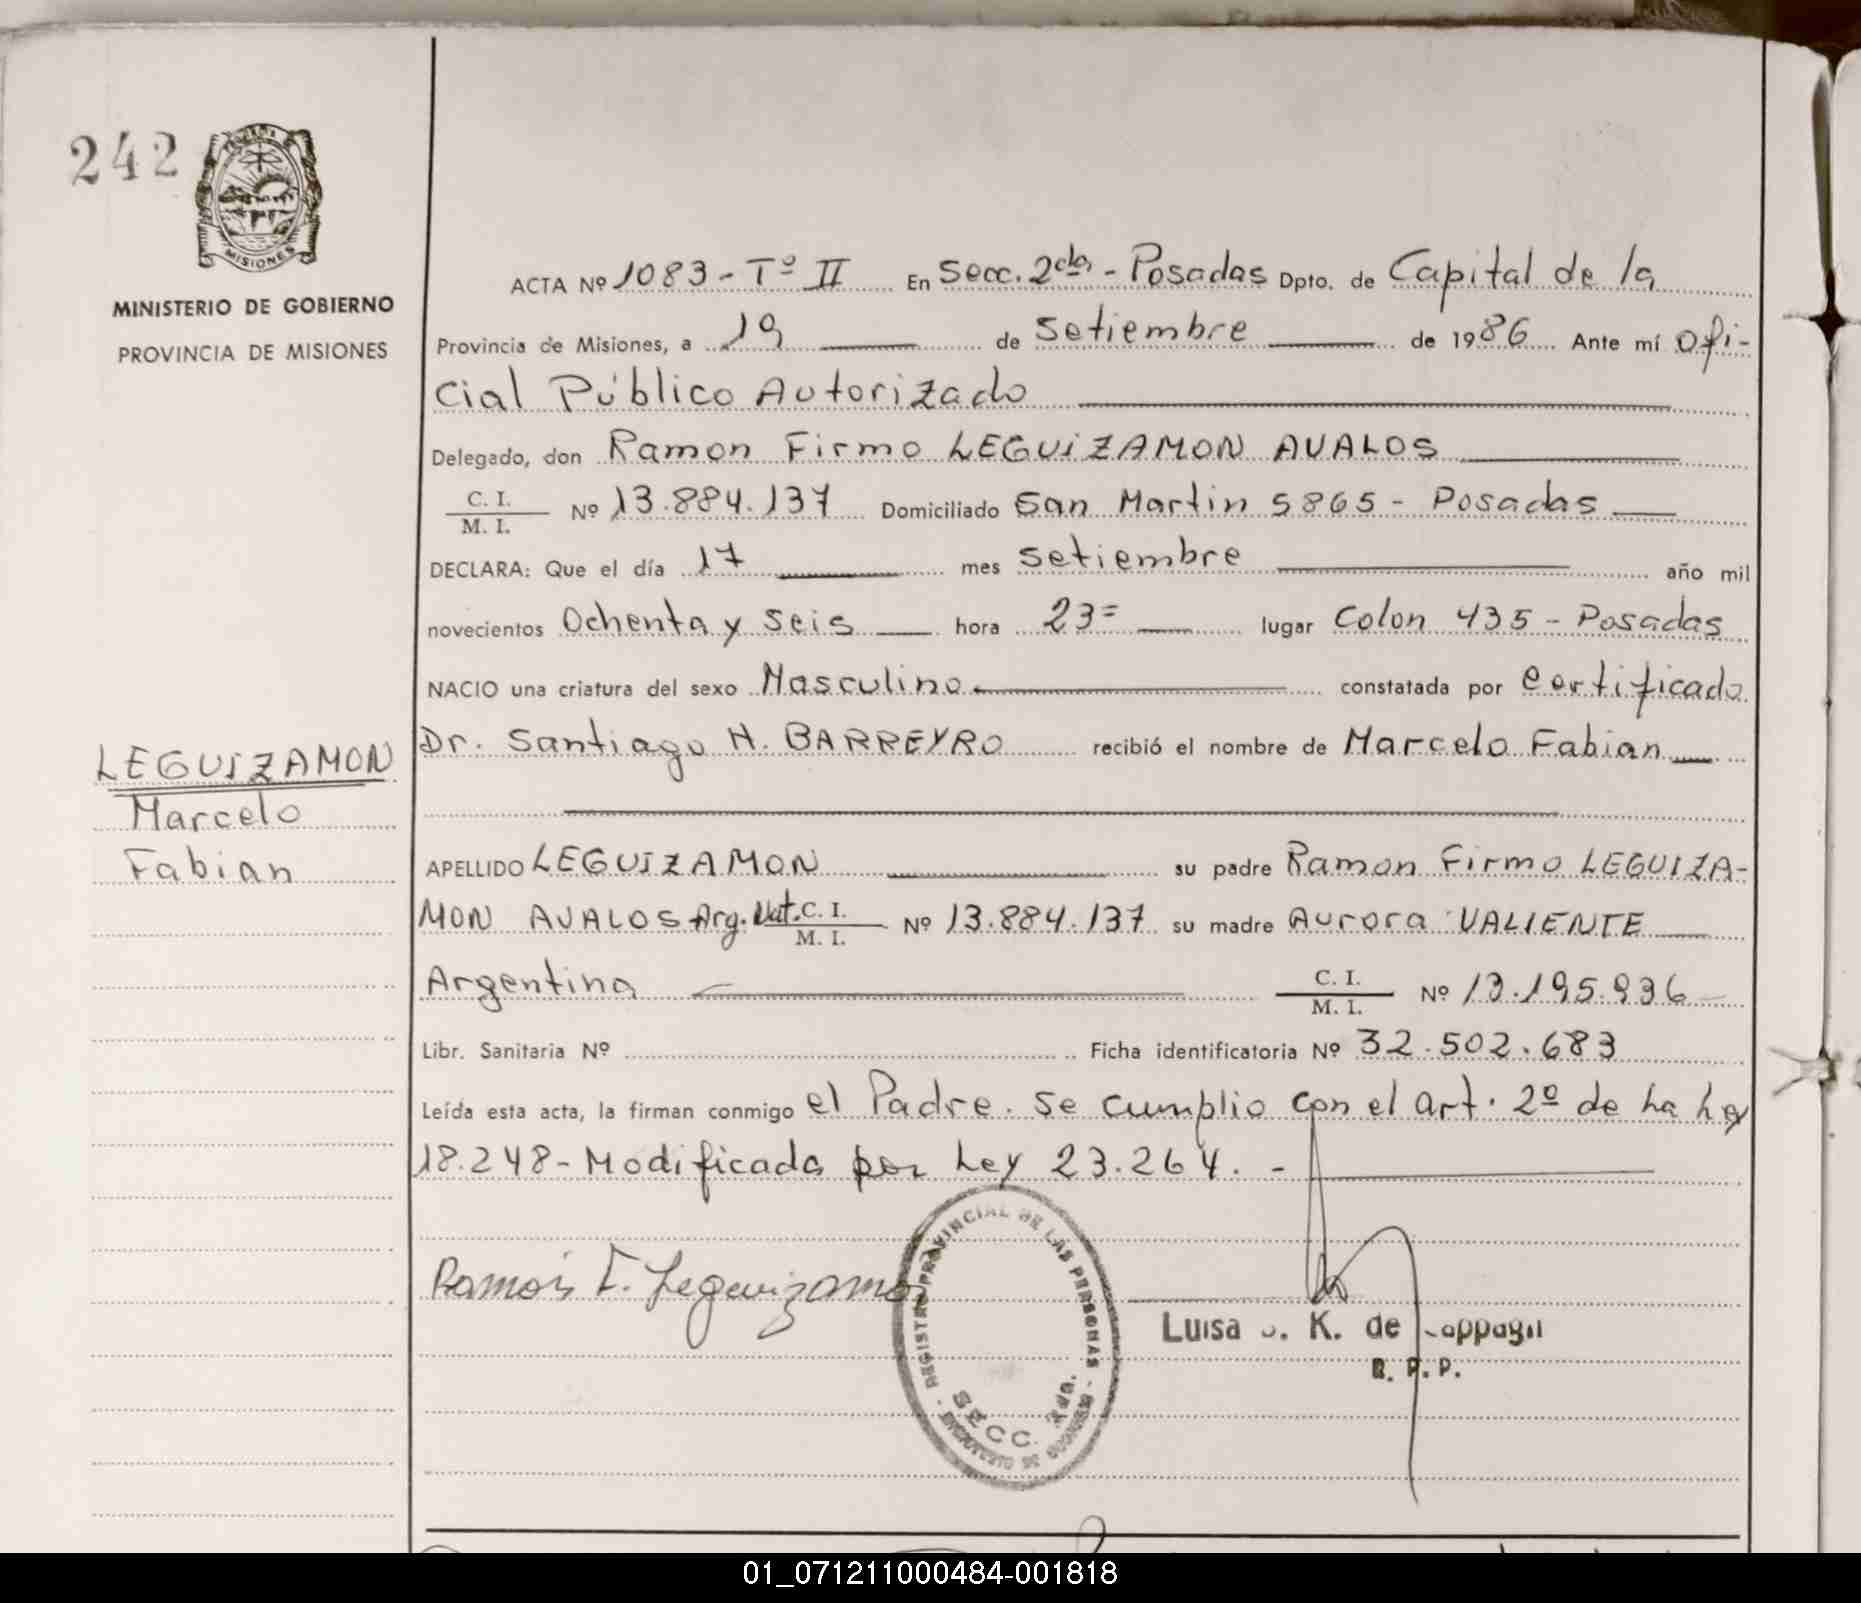 242
MISIONES
MINISTERIO DE GOBIERNO
PROVINCIA DE MISIONES
LEGUIZAMON
Marcelo
Fabian
ACTA Nº 1083 - Tº II En Secc. 2da - Posadas Dpto. de Capital de la
Provincia de Misiones, a 19 de Setiembre de 1986 Ante mí Ofi-
cial Público Autorizado
Delegado, don Ramon Firmo LEGUIZAMON AVALOS
C. I.
M. I. Nº 13.884.137 Domiciliado San Martin 5865 - Posadas
DECLARA: Que el día 17 mes Setiembre año mil
novecientos Ochenta y Seis hora 23= lugar Colon 435 - Posadas
NACIO una criatura del sexo Masculino constatada por Certificado
Dr. Santiago H. BARREYRO recibió el nombre de Marcelo Fabian
APELLIDO LEGUIZAMON su padre Ramon Firmo LEGUIZA-
MON AVALOS Arg. Nat. C. I. M. I. Nº 13.884.137 su madre Aurora VALIENTE
Argentina C. I. M. I. Nº 13.195.936
Libr. Sanitaria Nº Ficha identificatoria Nº 32.502.683
Leída esta acta, la firman conmigo el Padre. Se cumplio con el art. 2º de La Ley
18.248 - Modificada por Ley 23.264. -
Ramón F. Leguizamon
REGISTRO PROVINCIAL DE LAS PERSONAS
SECC. 2da.
Luisa K. de
R. P. P.
01_071211000484-001818